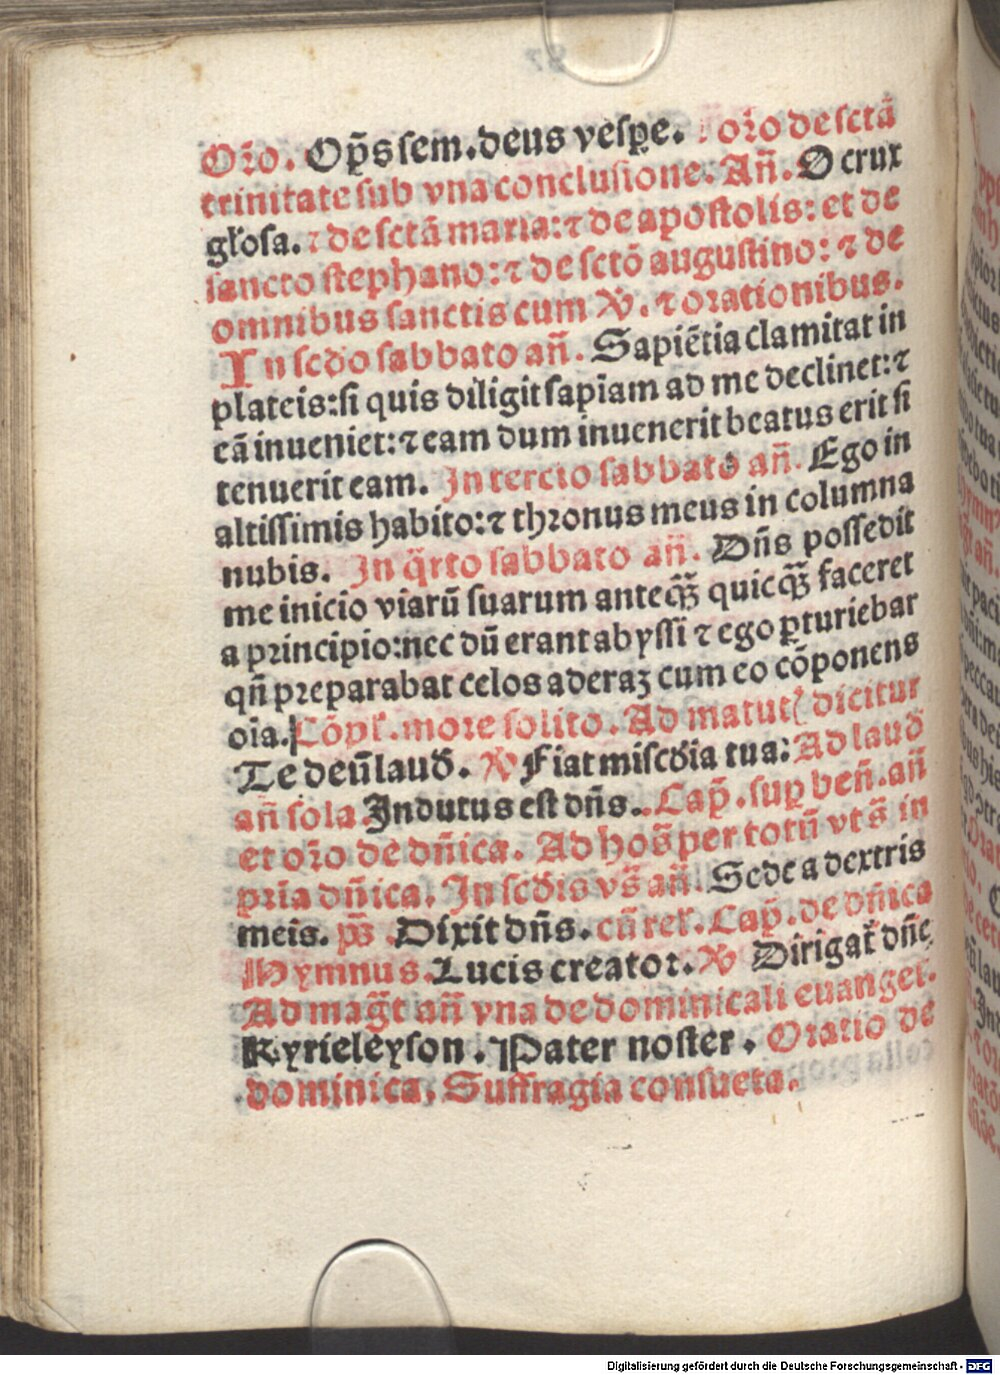 Oro̅. Op̅s sem. deus vesꝑe. ⁊ oro̅ de sctā
trinitate sub vna conclusione. An̅. O crux
gl'osa. ⁊ de sctā maria: ⁊ de apostolis: et de
sancto stephano: ⁊ de sctō augustino: ⁊ de
omnibus sanctis cum ℣. ⁊ orationibus.
In scd̅o sabbato an̅. Sapiētia clamitat in
plateis: si quis diligit sapīam ad me declinet: ⁊
eā inueniet: ⁊ eam dum inuenerit beatus erit si
tenuerit eam. In tercio sabbato an̅. Ego in
altissimis habito: ⁊ thronus meus in columna
nubis. In q̄rto sabbato an̅. Dn̅s possedit
me inicio viarū suarum anteqȝ̄ quicqȝ̄ faceret
a principio: nec dū erant abyssi ⁊ ego ꝑturiebar
qn̅ preparabat celos aderaꝫ cum eo cōponens
oīa. Cōpl'. more solito. Ad matut' dicitur
Te deū laud'. ℣ Fiat miscd̅ia tua: Ad laud'
an̅ sola Indutus est dn̅s. Cap̅. sup ben̅. an̅
et oro̅ de dn̅ica. Ad hos̅ per totū vts̅ in
pria dn̅ica. In scd̅is vs̅ an̅. Sede a dextris
meis. ps̅ Dixit dn̅s. cū rel'. Cap̅. de dn̅ica
Hymnus. Lucis creator. ℣ Dirigat' dn̅e
Ad mag̅t an̅ vna de dominicali euangel'.
Kyrieleyson. Pater noster. Oratio de
dominica. Suffragia consueta.
Digitalisierung gefördert durch die Deutsche Forschungsgemeinschaft - DFG